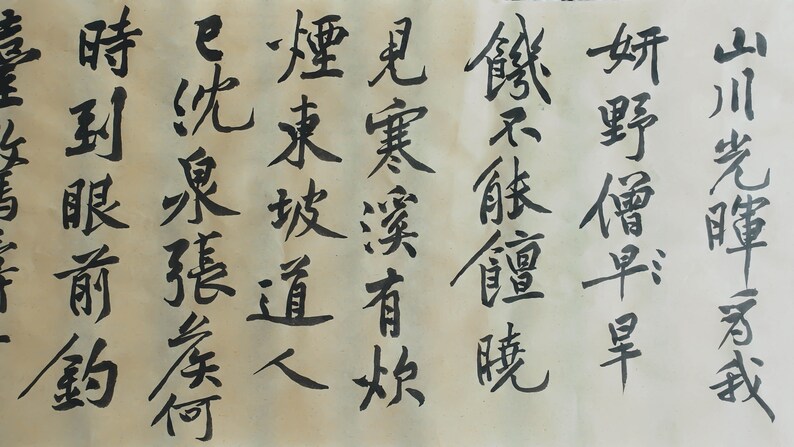 山川光暉為我
妍野僧早旱
饑不能饘曉
見寒溪有炊
煙東坡道人
已沈泉張侯何
時到眼前釣
臺驚濤